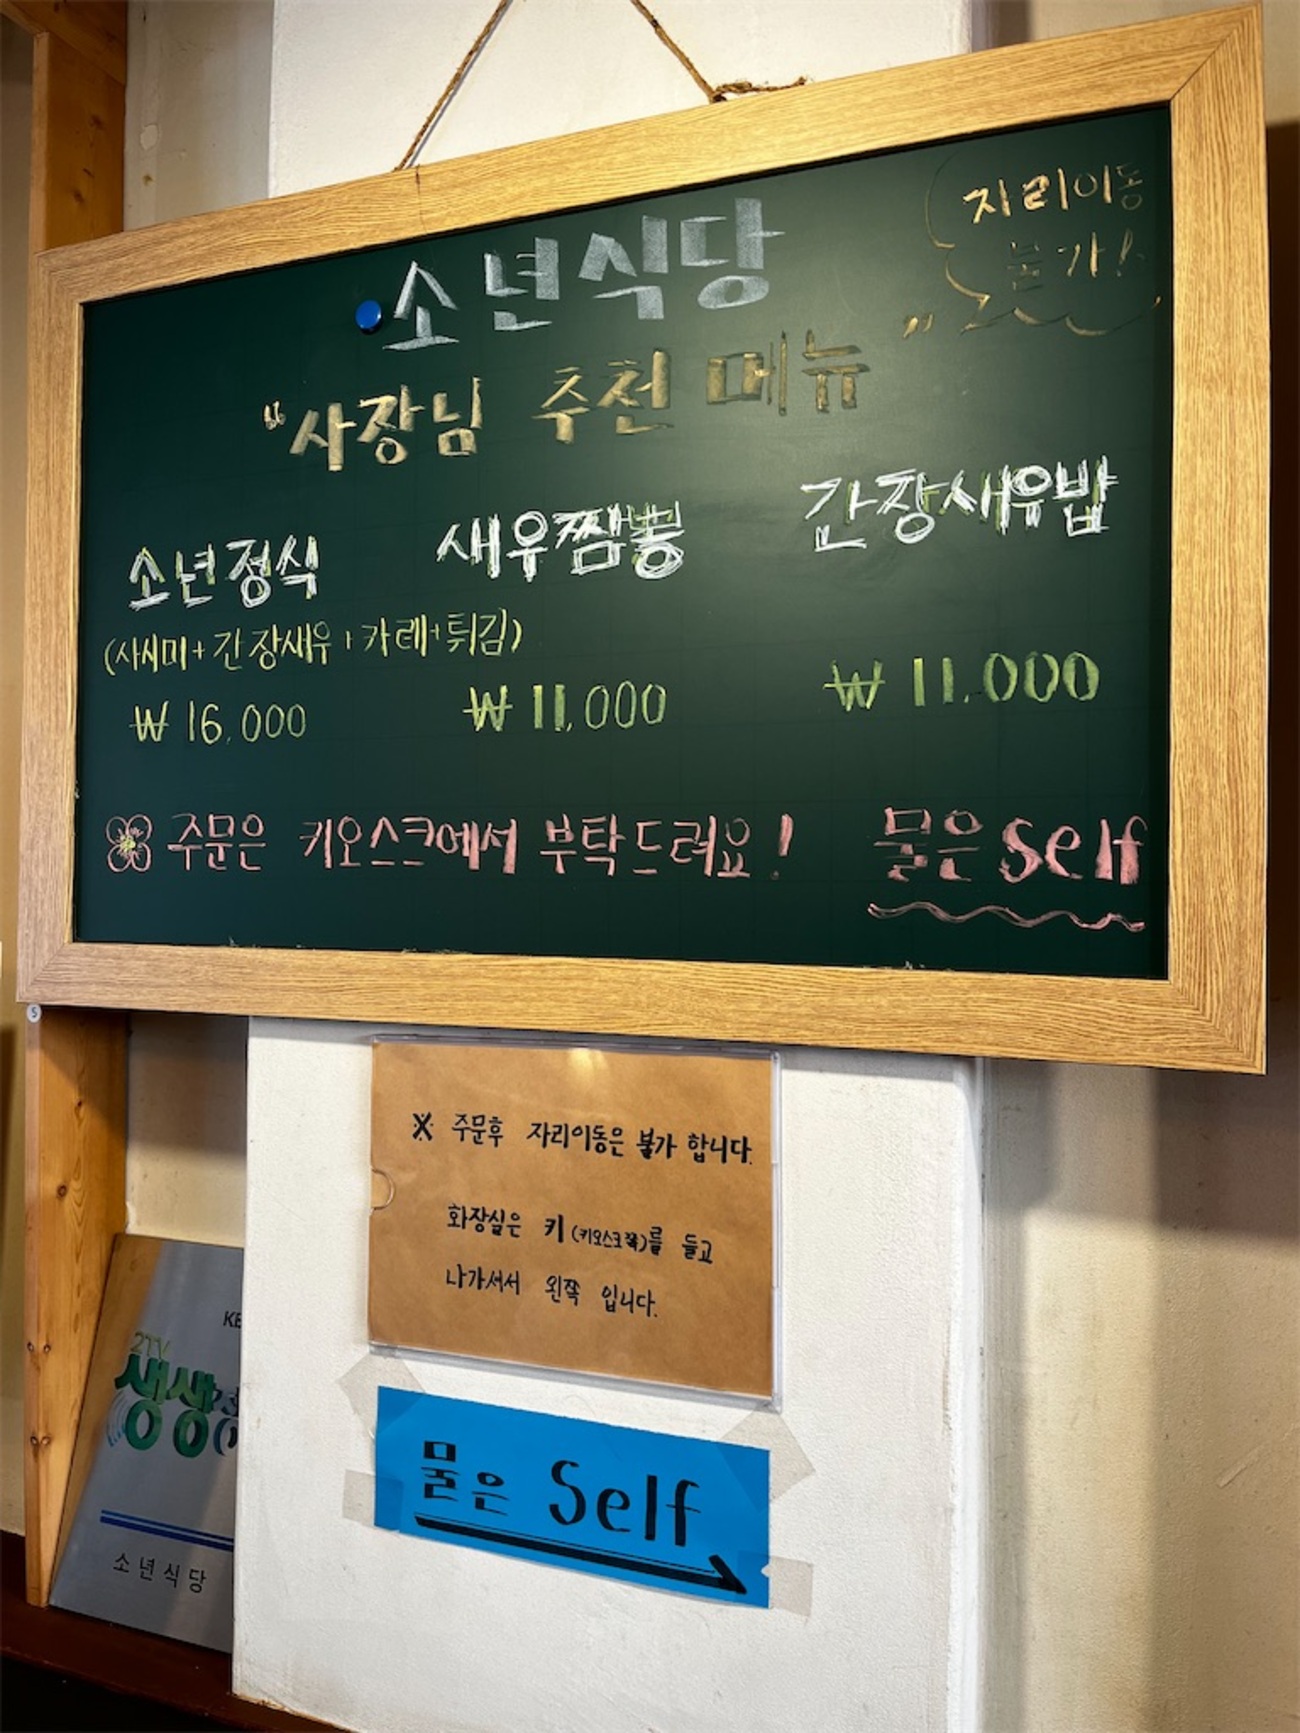 소년식당
자리이동
불가!
"사장님 추천 메뉴"
소년정식
(사시미+간장새우+카레+튀김)
₩ 16,000
새우짬뽕
₩ 11,000
간장새우밥
₩ 11,000
주문은 키오스크에서 부탁드려요!
물은 self
※ 주문후 자리이동은 불가 합니다.
화장실은 키(키오스크쪽)를 들고
나가셔서 왼쪽 입니다.
물은 Self
2TV
생생
소년식당